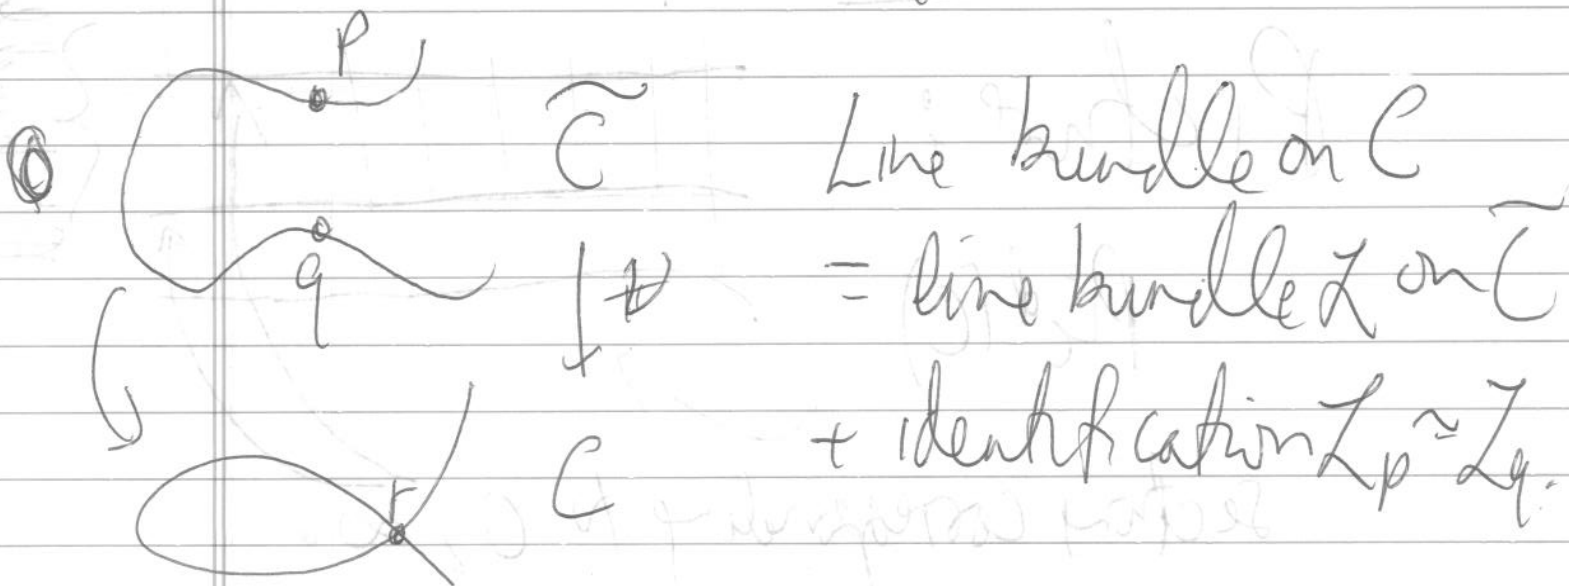 p
C̃ Line bundle on C
q ν = line bundle L on C̃
+ identification L_p ≃ L_q.
r C